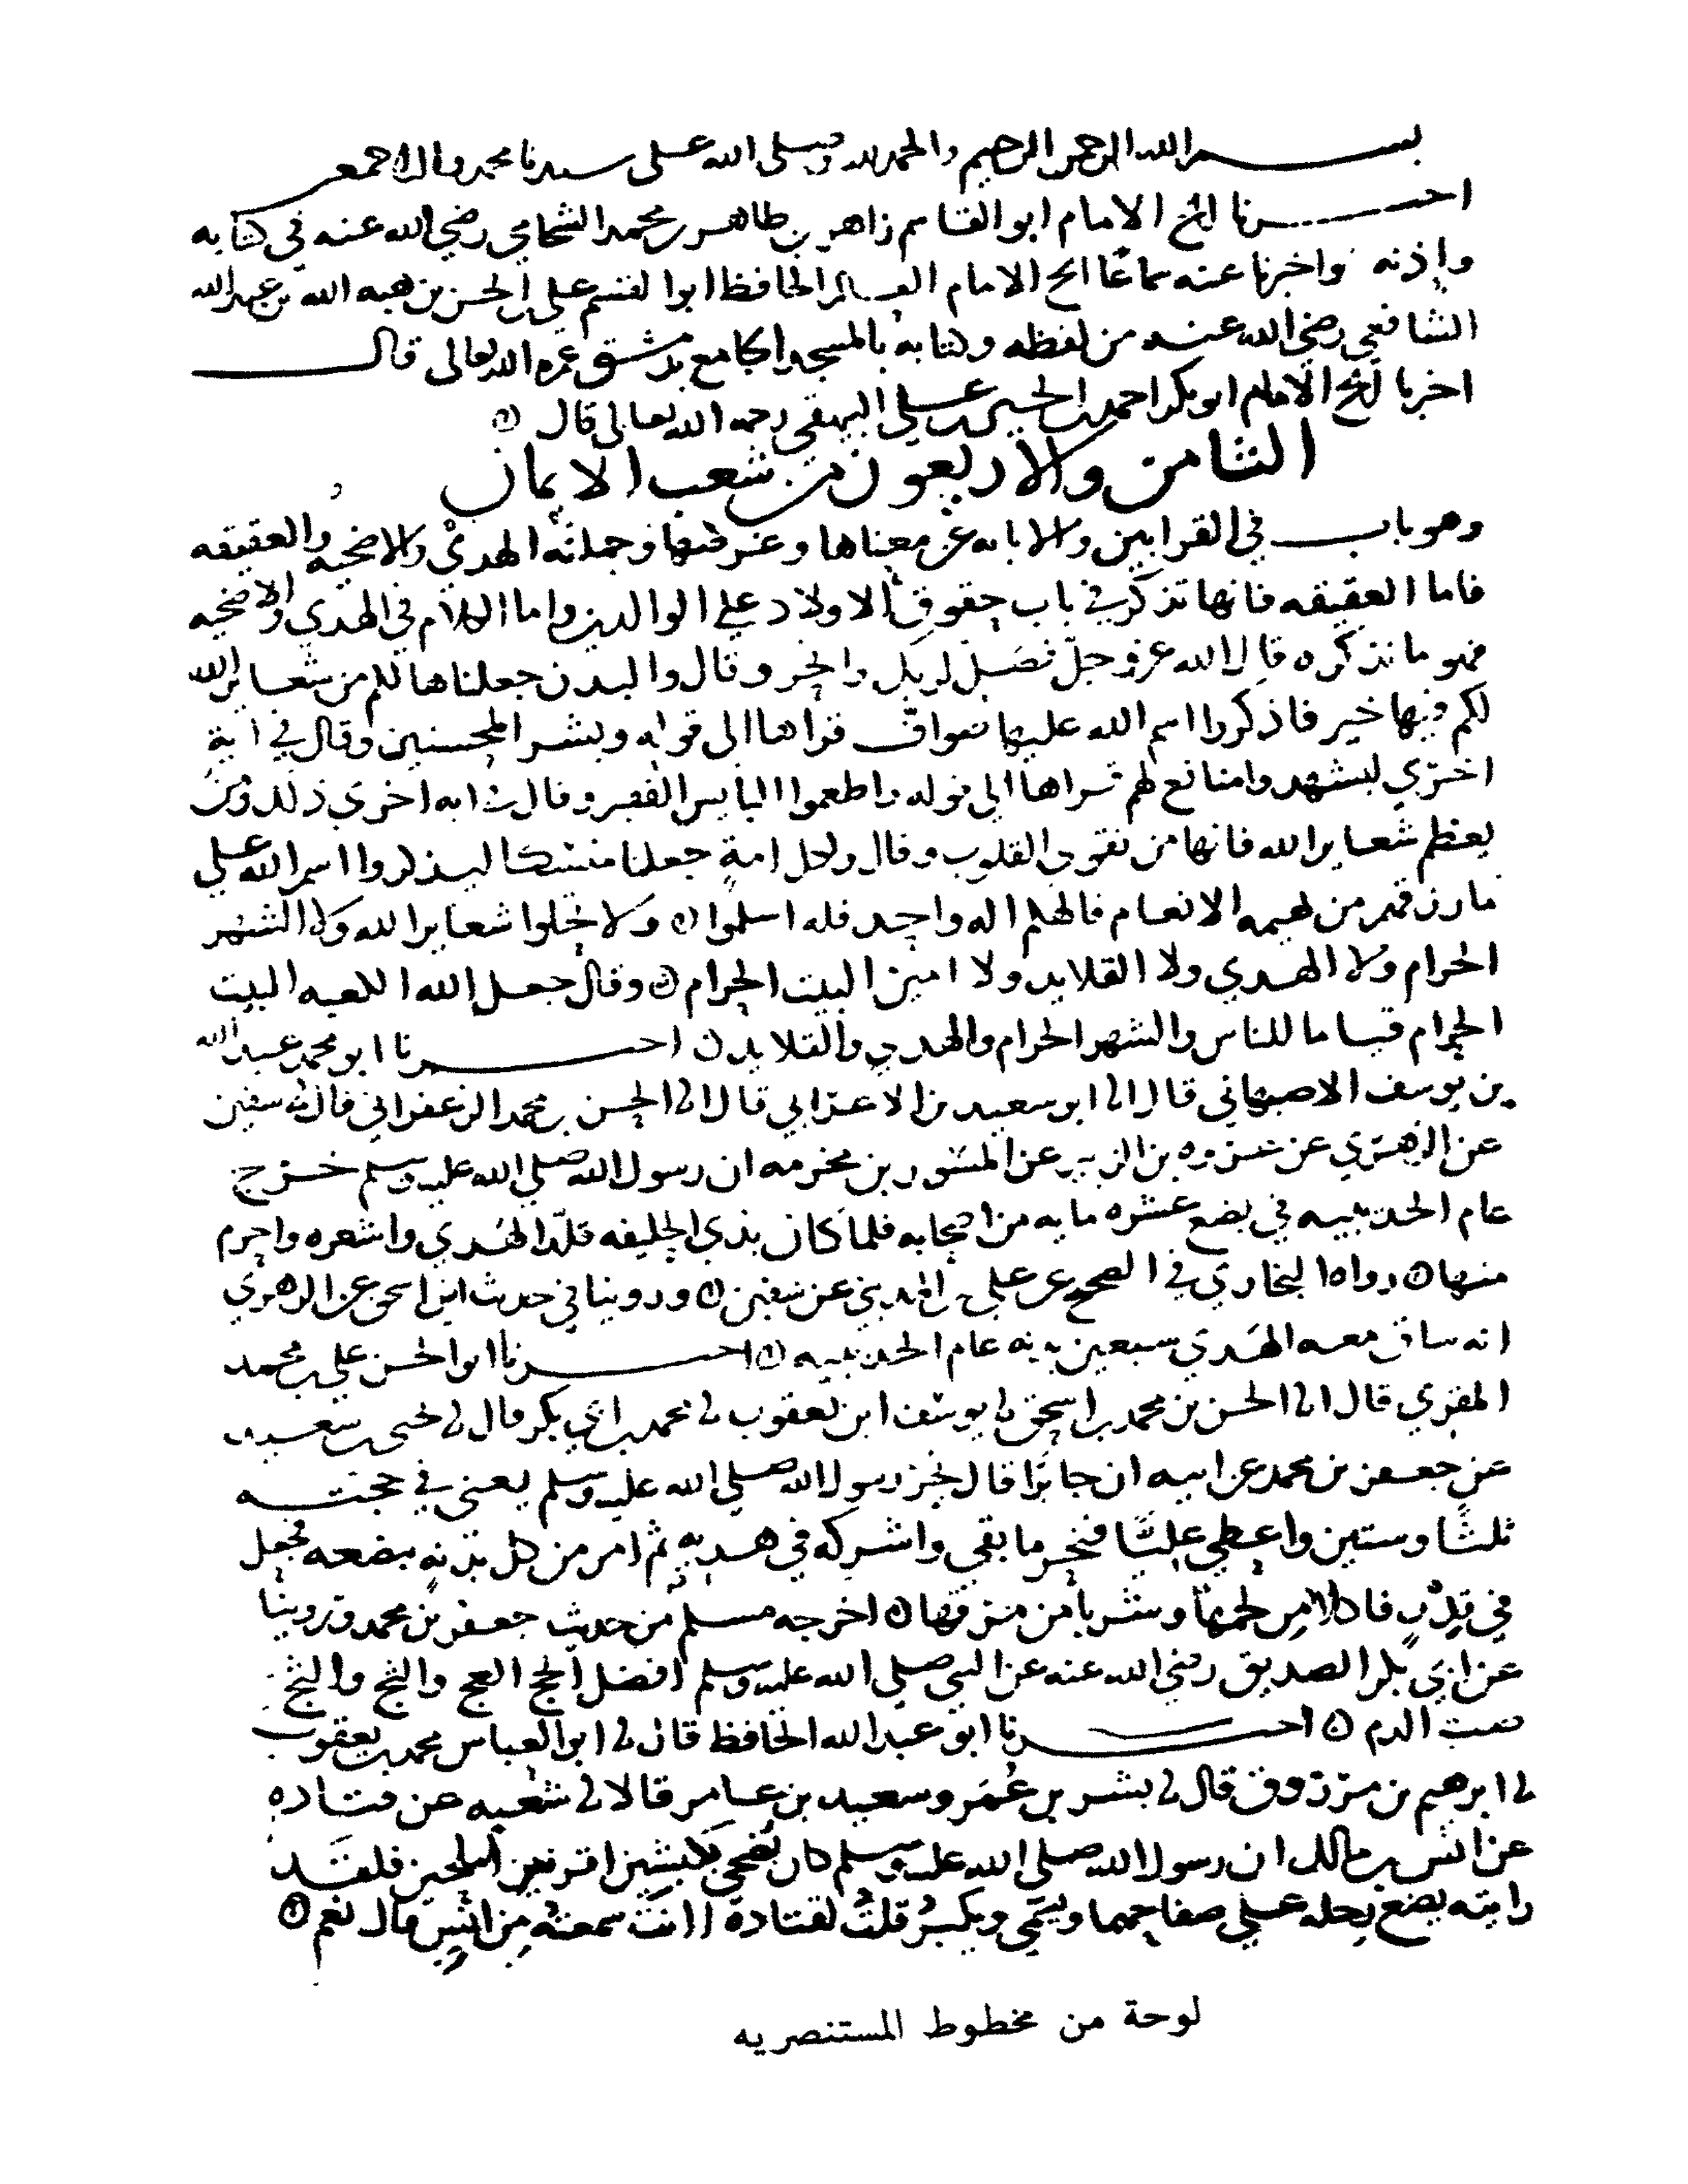 بسم الله الرحمن الرحيم والحمد لله وصلى الله على سيدنا محمد واله اجمعين
اخبرنا الشيخ الامام ابو القاسم زاهر بن طاهر بن محمد الشحامي رضي الله عنه في كتابه
واذنه واخبرنا عنه سماعا الشيخ الامام العالم الحافظ ابو القسم علي بن الحسن بن هبه الله بن عبد الله
الشافعي رضي الله عنه من لفظه وكتابه بالمسجد الجامع بدمشق عمره الله تعالى قال
اخبرنا الشيخ الامام ابو بكر احمد بن الحسين بن علي البيهقي رحمه الله تعالى قال
الثامن والاربعون من شعب الايمان
وهو باب في القرابين والابانه عن معناها وغرضها وجملته الهدي والاضحيه والعقيقه
فاما العقيقه فانها تذكر في باب حقوق الاولاد علي الوالدين واما الكلام في الهدي والاضحيه
فهو ما نذكره قال الله عز وجل فصل لربك وانحر وقال والبدن جعلناها لكم من شعاير الله
لكم فيها خير فاذكروا اسم الله عليها صواف قراها الى قوله وبشر المحسنين وقال في اية
اخري ليشهدوا منافع لهم قراها الى قوله واطعموا البايس الفقير وقال في ايه اخرى ذلك ومن
يعظم شعاير الله فانها من تقوى القلوب وقال ولكل امة جعلنا منسكا ليذكروا اسم الله علي
مارزقهم من بهيمه الانعام فالهكم اله واحد فله اسلموا ولا تحلوا شعاير الله ولا الشهر
الحرام ولا الهدي ولا القلايد ولا امين البيت الحرام وقال جعل الله الكعبه البيت
الحرام قياما للناس والشهر الحرام والهدي والقلايد اخبرنا ابو محمد عبد الله
بن يوسف الاصبهاني قال انا ابو سعيد بن الاعرابي قال انا الحسن بن محمد الزعفراني قال نا سفين
عن الزهري عن عروه بن الزبير عن المسور بن مخرمه ان رسول الله صلي الله عليه وسلم خرج
عام الحديبيه في بضع عشره مايه من اصحابه فلما كان بذي الحليفه قلد الهدي واشعره واحرم
منها رواه البخاري في الصحيح عن علي بن المديني عن سفين وروينا في حديث ابن اسحق عن الزهري
انه ساق معه الهدي سبعين بدنه عام الحديبيه اخبرنا ابو الحسن علي بن محمد
المقري قال انا الحسن بن محمد بن اسحق نا يوسف ابن يعقوب نا محمد بن ابي بكر قال نا يحيى بن سعيد
عن جعفر بن محمد عن ابيه ان جابرا قال نحر رسول الله صلي الله عليه وسلم يعني في حجته
ثلثا وستين واعطي عليا فنحر ما بقي واشركه في هديه ثم امر من كل بدنه ببضعه فجعل
في قدر فاكلا من لحمها وشربا من مرقها اخرجه مسلم من حديث جعفر بن محمد وروينا
عن ابي بكر الصديق رضي الله عنه عن النبي صلي الله عليه وسلم افضل الحج العج والثج والثج
صب الدم اخبرنا ابو عبد الله الحافظ قال نا ابو العباس محمد بن يعقوب
نا ابرهيم بن مرزوق قال نا بشر بن عمر وسعيد بن عامر قالا نا شعبه عن قتاده
عن انس بن مالك ان رسول الله صلى الله عليه وسلم كان يضحي بكبشين اقرنين املحين فلقد
رايته يضع رجله علي صفاحهما ويسمي ويكبر قلت لقتادة اانت سمعته من انس قال نعم
لوحة من مخطوط المستنصريه